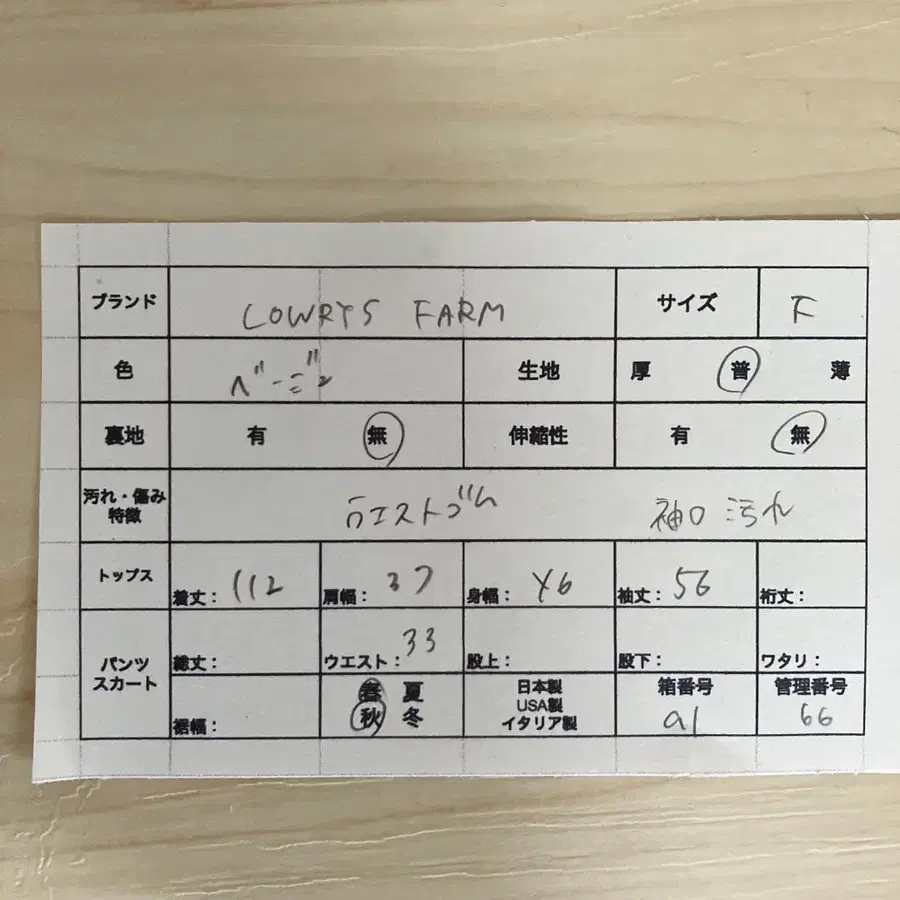 ブランド LOWRYS FARM サイズ F
色 ベージュ 生地 厚 普 薄
裏地 有 無 伸縮性 有 無
汚れ・傷み
特徴 ウエストゴム 袖口汚れ
トップス 着丈: 112 肩幅: 37 身幅: 46 袖丈: 56 裄丈:
パンツ
スカート 総丈: ウエスト: 33 股上: 股下: ワタリ:
裾幅: 春 夏
秋 冬
日本製
USA製
イタリア製
箱番号
a1
管理番号
66